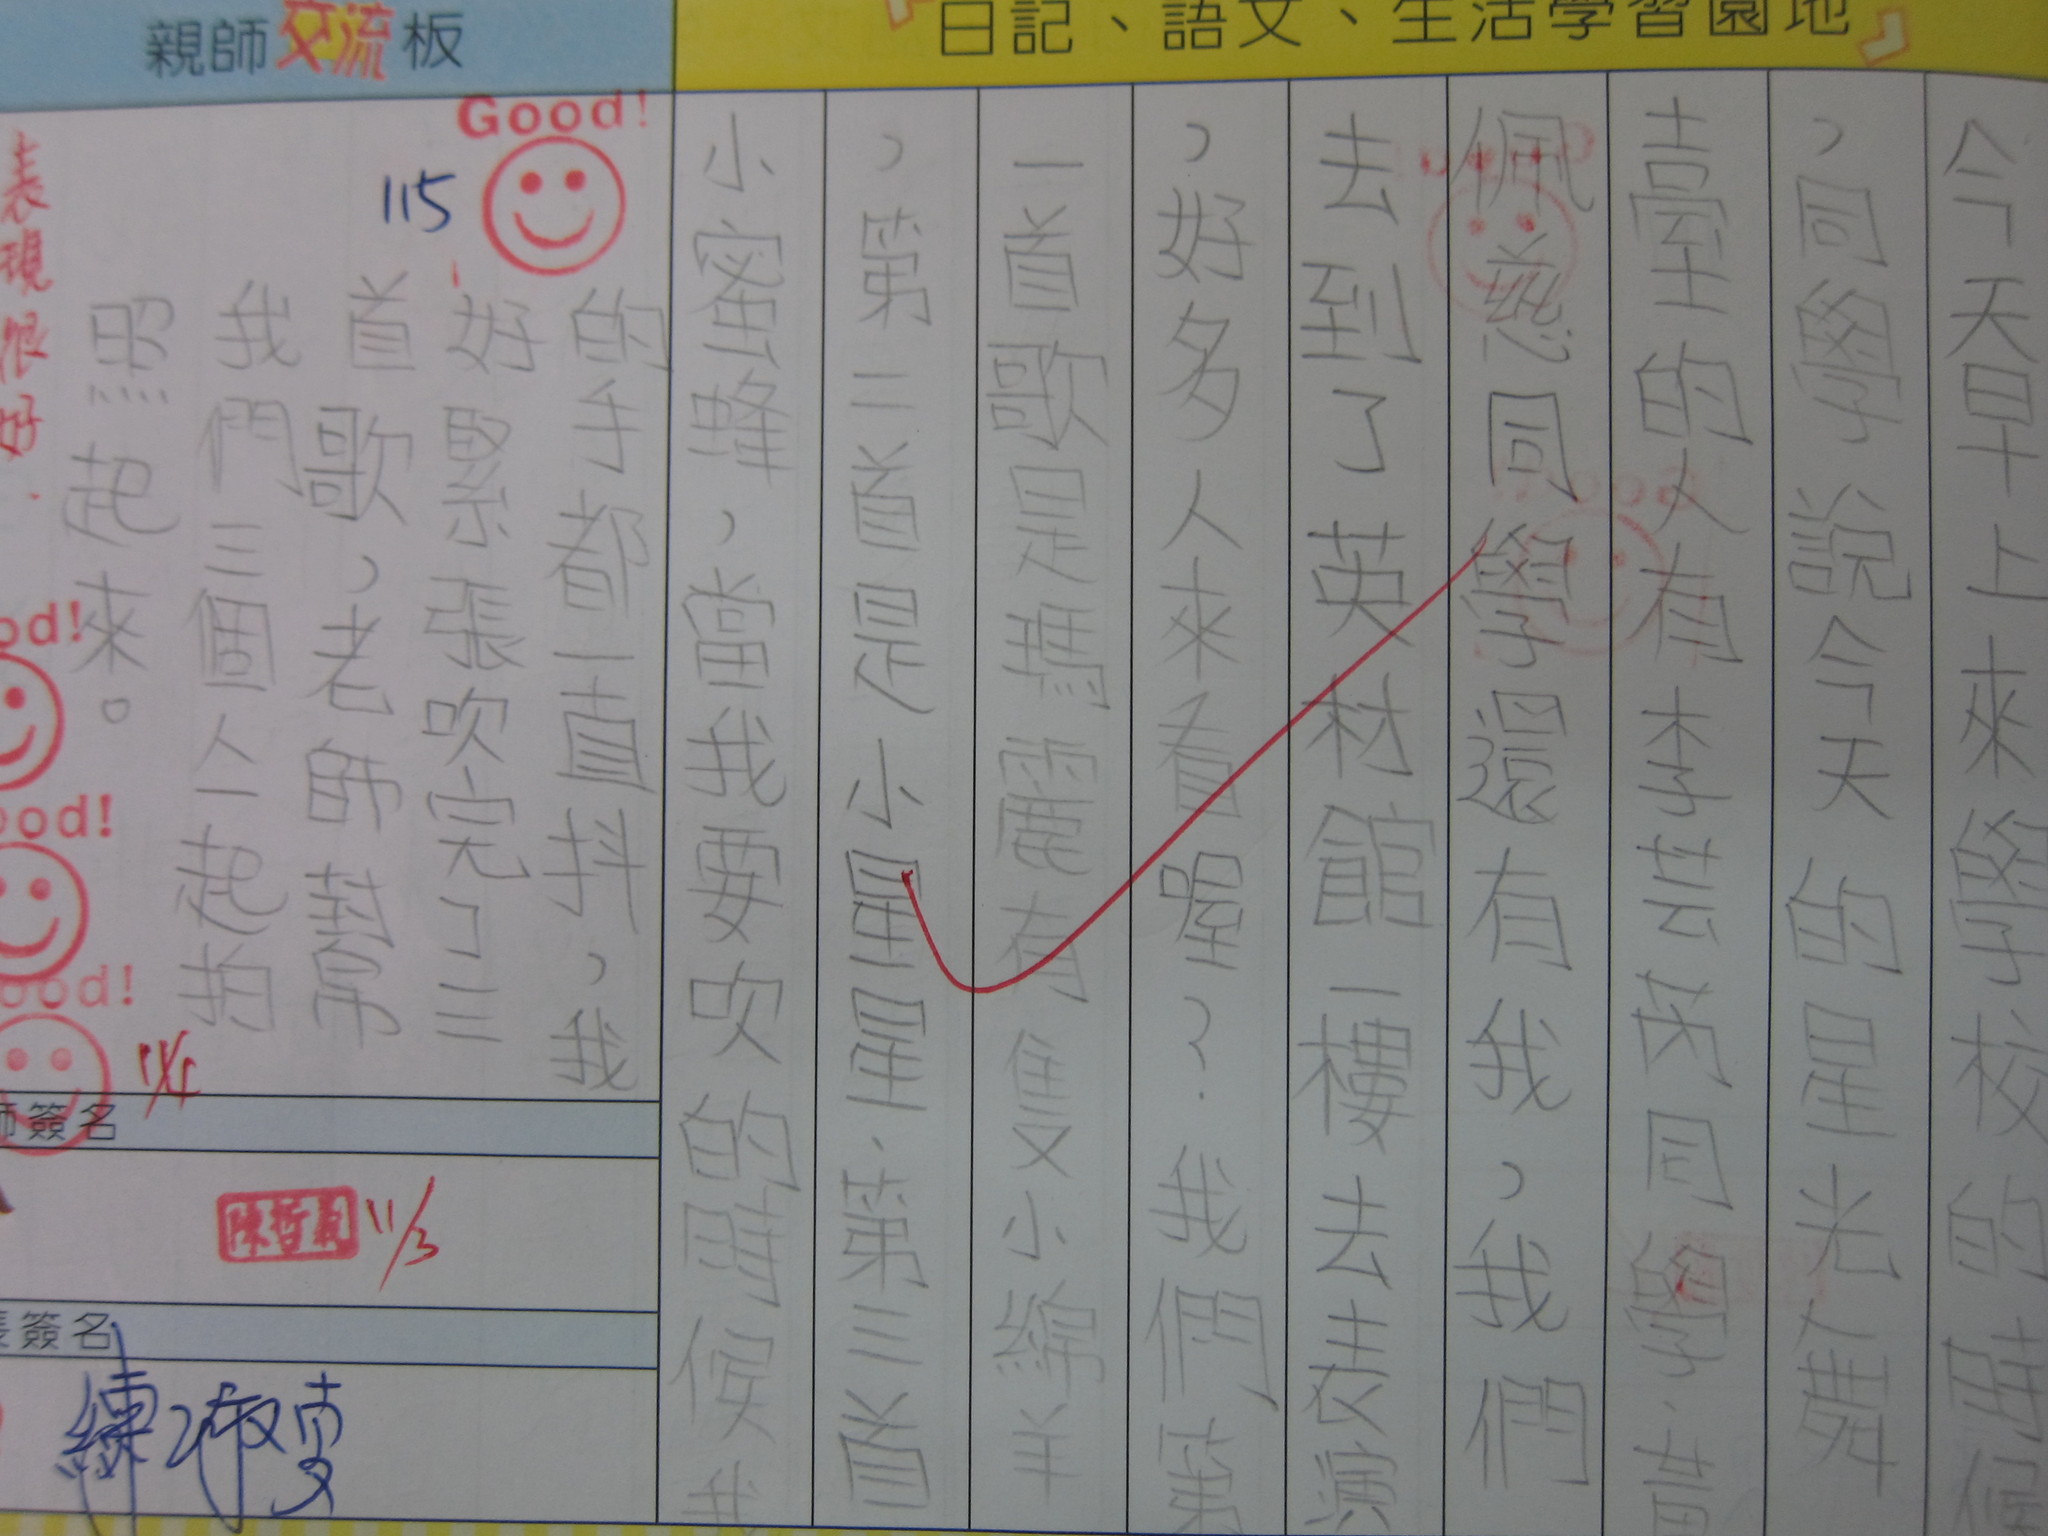 親師交流板
日記、語文、生活學習園地
今天早上來學校的時候
，同學說今天的星光舞
臺的人有李芸芮同學、黃
佩慈同學還有我，我們
去到了英材館一樓去表演
，好多人來看喔？我們第
一首歌是瑪麗有隻小綿羊
，第二首是小星星、第三首
小蜜蜂，當我要吹的時候我
的手都一直抖，我
好緊張吹完了三
首歌，老師幫
我們三個人一起拍
照起來。
Good!
115
表現很好.
ood!
ood!
ood!
11/2
師簽名
陳哲
11/3
長簽名